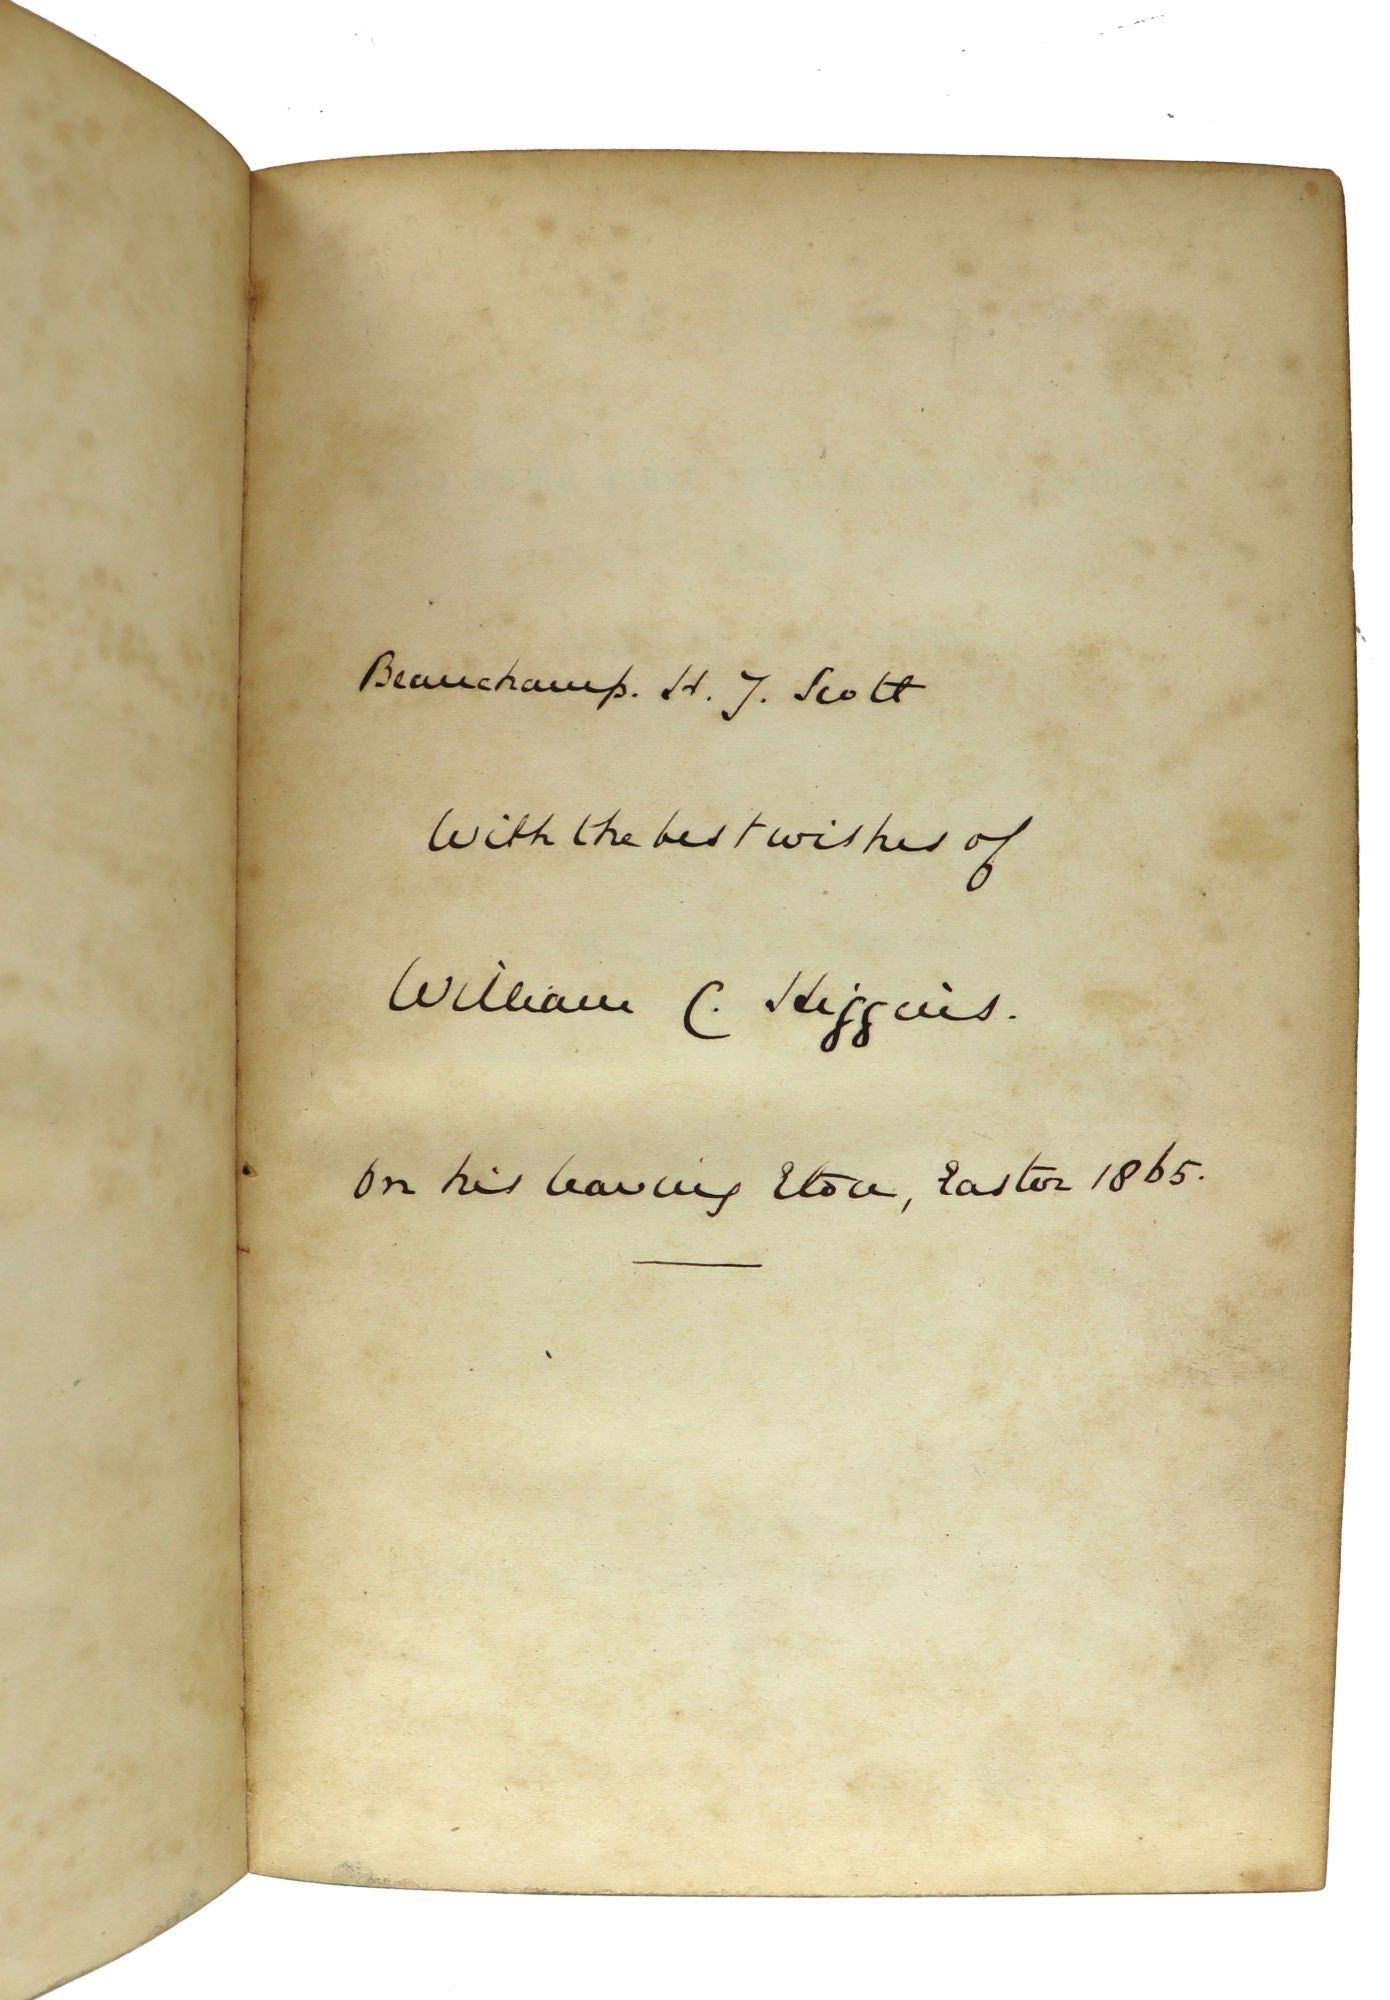 Beauchamp. H. J. Scott
With the best wishes of
William C. Higgins.
On his leaving Eton, Easter 1865.